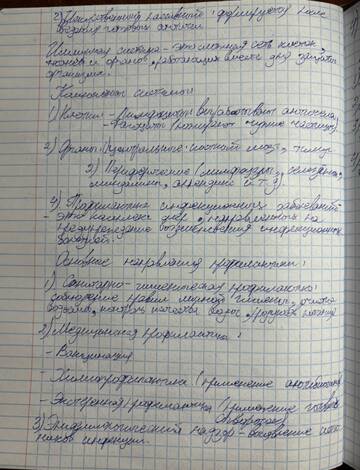 2) Искусственный пассивный: формируется после
введения готовых антител.
Иммунная система - это сложная сеть клеток
тканей и органов, работающих вместе для защиты
организма.
Компоненты системы
1) Клетки: - Лимфоциты вырабатывают антитела;
- Фагоциты (пожирают чужие частицы)
2) Органы: Центральные: костный мозг, тимус
3) Периферические (лимфоузлы, селезёнка,
миндалины, аппендикс и т.д).
4) Профилактика инфекционных заболеваний
- это комплекс мер, направленных на
предупреждение возникновения инфекционных
болезней.
Основные направления профилактики:
1) Санитарно-гигиеническая профилактика:
соблюдение правил личной гигиены, очистка
контроль качества воды,
2) Медицинская профилактика:
- Вакцинация
- Химиопрофилактика (применение антибиотиков)
- Экстренная профилактика (применение готовых
сывороток)
3) Эпидемиологический надзор - выявление источ-
ников инфекции.